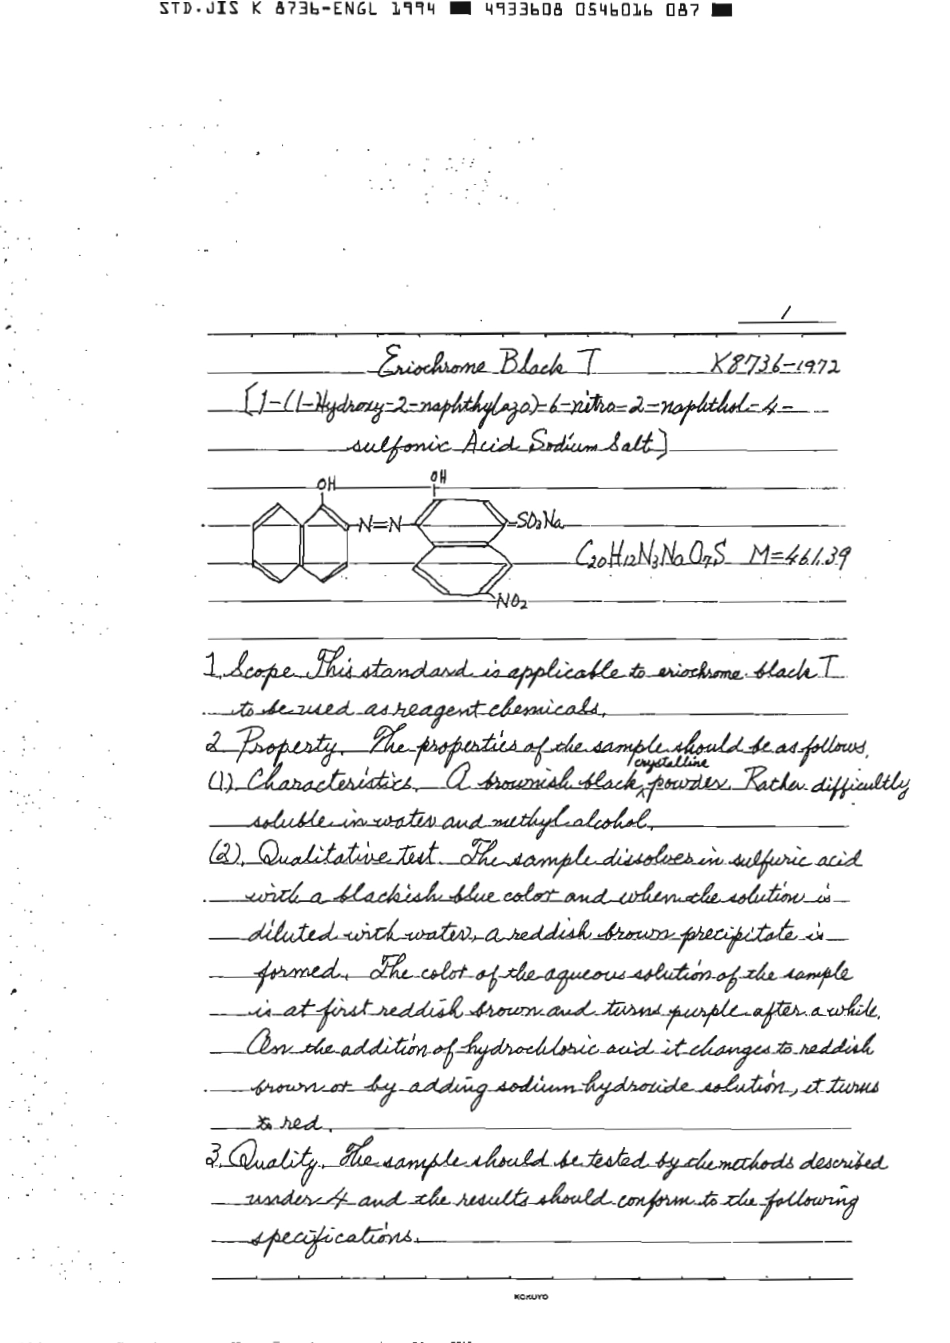 STD.JIS K 8736-ENGL 1994 ■ 4933608 0546016 087 ■
1
Eriochrome Black T K8736-1972
[1-(1-Hydroxy-2-naphthylazo)-6-nitro-2-naphthol-4-
sulfonic Acid Sodium Salt]
OH OH
-N=N- -SO3Na
C20H12N3NaO7S M=461.39
NO2
1. Scope. This standard is applicable to eriochrome black T
to be used as reagent chemicals.
2. Property. The properties of the sample should be as follows.
(1). Characteristics. A brownish black crystalline powder. Rather difficultly
soluble in water and methyl alcohol.
(2). Qualitative test. The sample dissolves in sulfuric acid
with a blackish blue color and when the solution is
diluted with water, a reddish brown precipitate is
formed. The color of the aqueous solution of the sample
is at first reddish brown and turns purple after a while.
On the addition of hydrochloric acid it changes to reddish
brown or by adding sodium hydroxide solution, it turns
to red.
3. Quality. The sample should be tested by the methods described
under 4 and the results should conform to the following
specifications.
KOKUYO